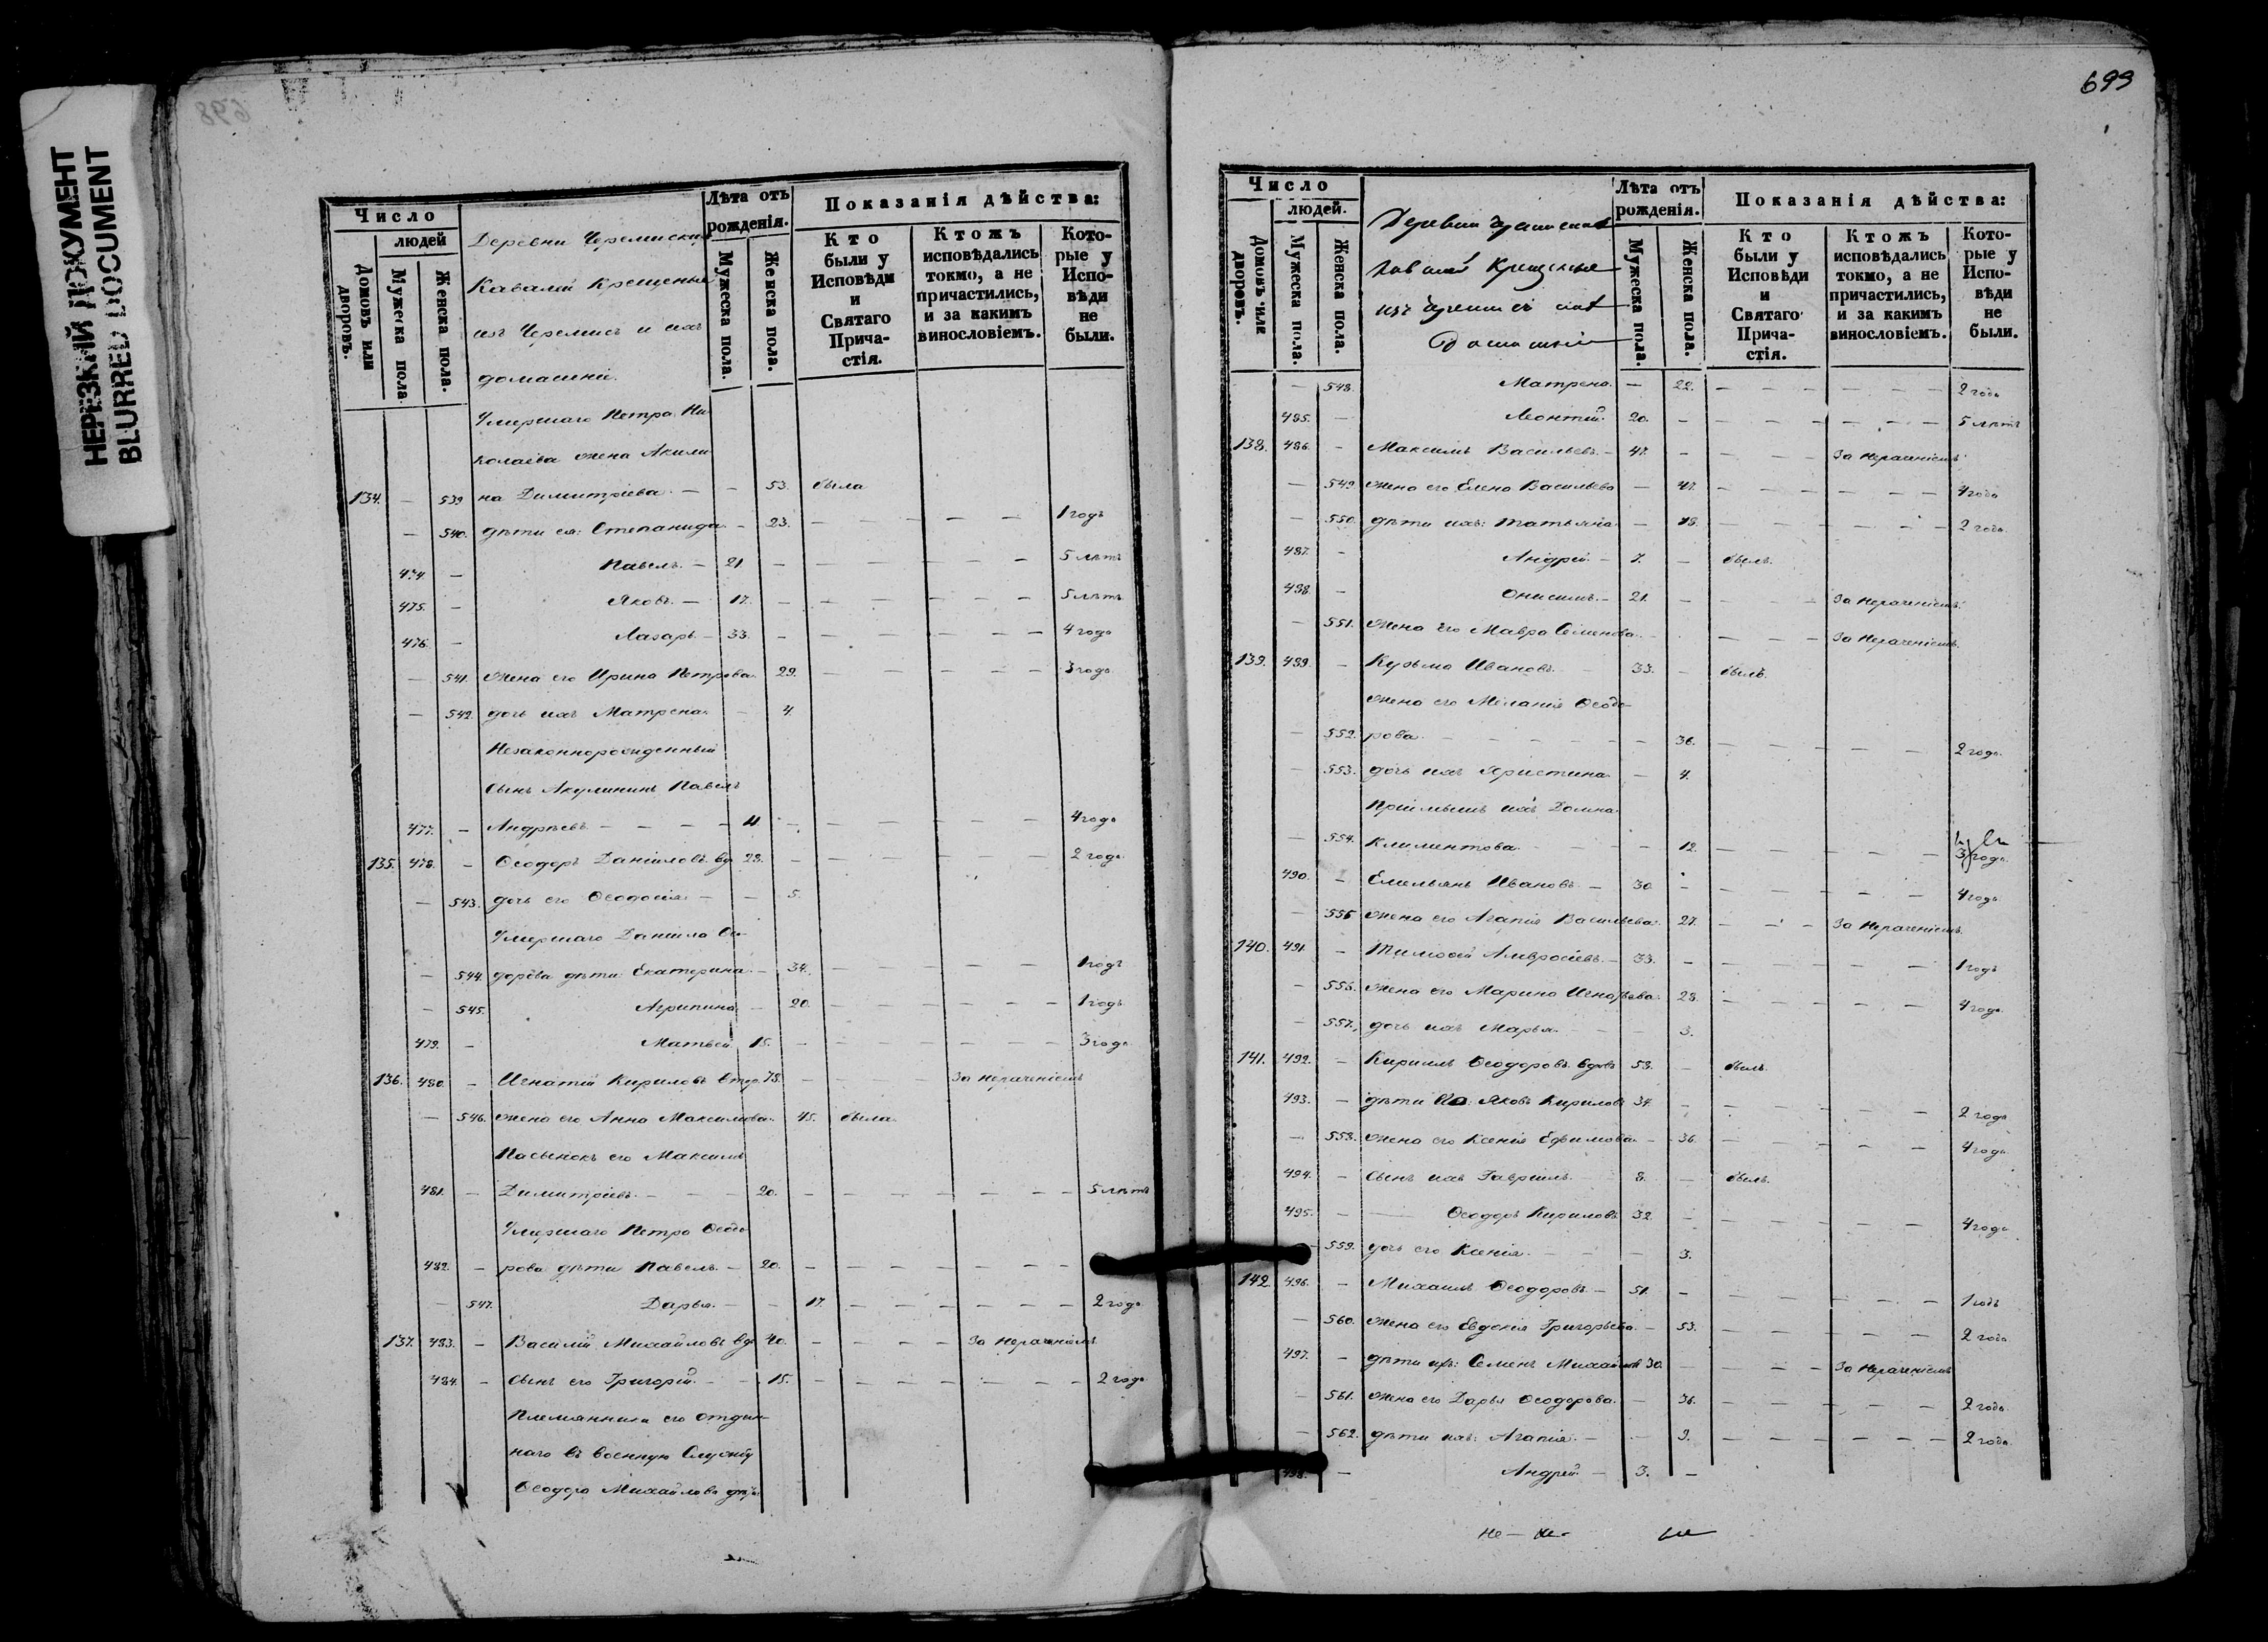 НЕРЕЗКИЙ ДОКУМЕНТ
BLURRED DOCUMENT
698
Число
людей
Домовъ или дворовъ.
Мужеска пола
Женска пола.
Деревни Черемиских
Кавалей крещеные
изъ Черемисъ и ихъ
домашніе.
Лѣта отъ рожденія.
Мужеска пола.
Женска пола.
Показанія дѣйства:
Кто были у Исповѣди и Святаго Прича-стія.
Ктожъ исповѣдались токмо, а не причастились, и за какимъ винословіемъ.
Кото-рые у Испо-вѣди не были.
Умершаго Петра Ни-
колаева жена Акили-
134. — 539 на Димитріева — — 53. была
— 540. дѣти ея: Степанида — 23. — — — — 1 годъ
474. — Павелъ. — 21. — — — — — 5 лѣтъ
475. — Яковъ. — 17. — — — — — 5 лѣтъ
476. — Лазарь — 33. — — — — — 4 года
— 541. жена его Ирина Петрова. 29. — — — — 3 года
— 542. дочь ихъ Матрена — 4.
Незаконнорожденный
сынъ Акулининъ Павелъ
477. — Андреевъ — — — 11 — — — — — 4 года
135. 478. — Ѳеодоръ Даніиловъ вд. 28. — — — — — 2 года
— 543. дочь его Ѳеодосія — — 5.
Умершаго Даніила Ѳео-
— 544. дорова дѣти Екатерина — 34. — — — — — 1 годъ
— 545. Агрипина — 20. — — — — — 1 годъ
479. — Матвей 15. — — — — — 3 года
136. 480. — Игнатій Кириловъ 78. — — — — За нераченіемъ
— 546. жена его Анна Максимова. 45. была
Пасынокъ его Максимъ
481. — Димитріевъ. — — 20. — — — — — 5 лѣтъ
Умершаго Петра Ѳеодо-
482. — рова дѣти Павелъ. — 20. — — — — —
— 547. Дарья. — — 17. — — — — — 2 года
137. 483. — Василій Михайловъ вд. 40. — — — — За нераченіемъ
484. — сынъ его Григорій. — — 15. — — — — — 2 года
Племянники его отдан-
наго въ военную службу
Ѳеодора Михайлова дѣти
699
Число
людей.
Домовъ или дворовъ.
Мужеска пола.
Женска пола.
Деревни
крещеные
изъ
Лѣта отъ рожденія.
Мужеска пола.
Женска пола.
Показанія дѣйства:
Кто были у Исповѣди и Святаго Прича-стія.
Ктожъ исповѣдались токмо, а не причастились, и за какимъ винословіемъ.
Кото-рые у Испо-вѣди не были.
— 548. Матрена. — 22. — — — — — 2 года
485. — Леонтий. 20. — — — — — 5 лѣтъ
138. 486. — Максимъ Васильевъ. — 47. — — — — За нераченіемъ
— 549. жена его Елена Васильева — 47. — — — — — 4 года
— 550. дѣти ихъ: Татьяна. — 18. — — — — — 2 года
487. — Андрей. — 7. — былъ.
488. — Онисимъ. — 21. — — За нераченіемъ.
— 551. жена его Мавра Семенова. — — — За нераченіемъ.
139. 489. — Кузьма Ивановъ. — 33. — былъ.
жена его Меланія Ѳеодо-
— 552. рова. — — — — 36. — — — — — 2 года.
— 553. дочь ихъ Христина. — 4.
Пріимышъ ихъ Домна
— 554. Климентова. — — 12. — — — — — 3 года.
490. — Емельянъ Ивановъ. — 30. — — — — — 4 года
— 555 жена его Агапія Васильева. 27. — — — За нераченіемъ.
140. 491. — Тимофей Амвросіевъ. — 33. — — — — — 1 годъ
— 556. жена его Марина Игнатьева. 28. — — — — 4 года
— 557. дочь ихъ Марья. — — 3.
141. 492. — Кирилъ Ѳеодоровъ вдовъ 53. — былъ.
493. — дѣти его: Яковъ Кириловъ 34. — — — — 2 года
— 558. жена его Ксенія Ефимова. — 36. — — — — 4 года
494. — Сынъ ихъ Гавріилъ. — 8. — былъ.
495. — Ѳеодоръ Кириловъ 32. — — — — — 4 года
— 559. дочь его Ксенія. — — 3.
142. 496. — Михаилъ Ѳеодоровъ. — 51. — — — — — 1 годъ
— 560. жена его Евдокія Григорьева. — 53. — — — — — 2 года
497. — дѣти ихъ: Семенъ Михайловъ 30. — — — — За нераченіемъ
— 561. жена его Дарья Ѳеодорова. — 36. — — — — — 2 года
— 562. дѣти ихъ: Агапія. — — 9. — — — — — 2 года.
498. — Андрей. — 3. —